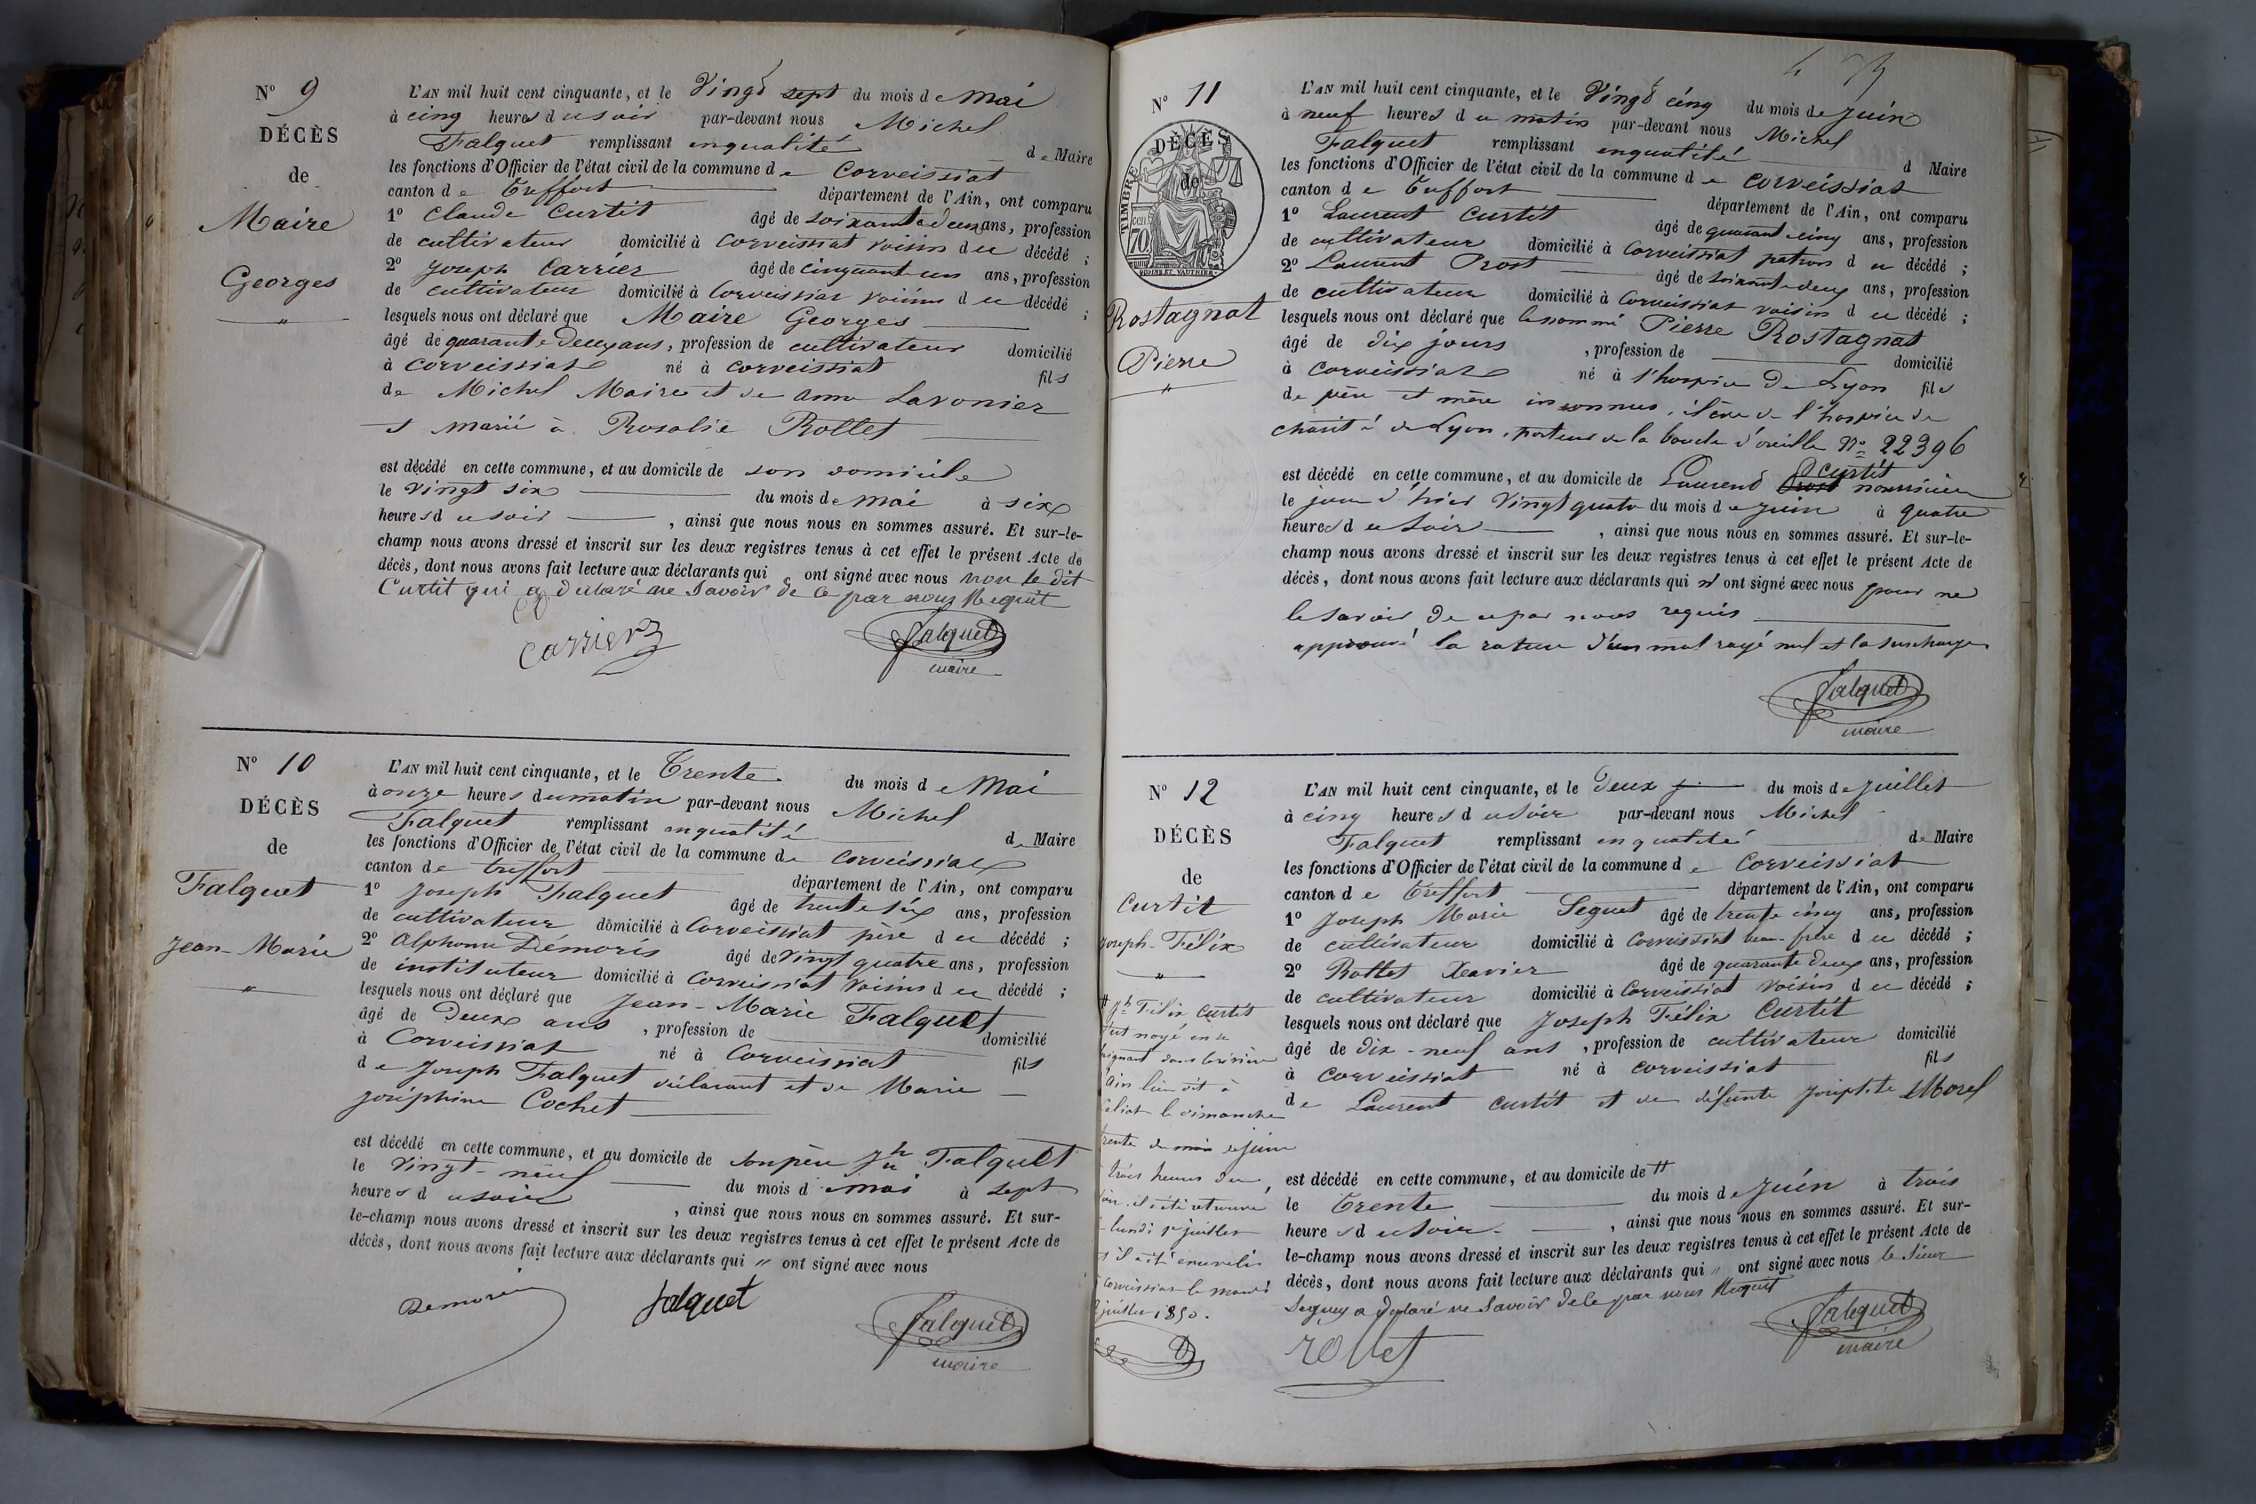 N° 9
DÉCÈS
de
Maire
Georges
L'AN mil huit cent cinquante, et le Vingt sept du mois de Mai
à cinq heures du soir par-devant nous Michel
Falquet remplissant en qualité de Maire
les fonctions d'Officier de l'état civil de la commune de Corveissiat
canton de Treffort département de l'Ain, ont comparu
1° Claude Curtit âgé de soixante deux ans, profession
de cultivateur domicilié à Corveissiat voisin du décédé ;
2° Joseph Carrier âgé de cinquante un ans, profession
de cultivateur domicilié à Corveissiat voisin du décédé ;
lesquels nous ont déclaré que Maire Georges
âgé de quarante deux ans, profession de cultivateur domicilié
à Corveissiat né à Corveissiat fils
de Michel Maire et de Anne Lavonier
et marié à Rosalie Rollet
est décédé en cette commune, et au domicile de son domicile
le vingt six du mois de mai à six
heures du soir, ainsi que nous nous en sommes assuré. Et sur-le-
champ nous avons dressé et inscrit sur les deux registres tenus à cet effet le présent Acte de
décès, dont nous avons fait lecture aux déclarants qui ont signé avec nous non le dit
Curtit qui a déclaré ne savoir de ce par nous Requit
Carrier
Falquet
maire
N° 10
DÉCÈS
de
Falquet
Jean-Marie
L'AN mil huit cent cinquante, et le Trente du mois de Mai
à onze heures du matin par-devant nous Michel
Falquet remplissant en qualité de Maire
les fonctions d'Officier de l'état civil de la commune de Corveissiat
canton de treffort département de l'Ain, ont comparu
1° Joseph Falquet âgé de trente six ans, profession
de cultivateur domicilié à Corveissiat père du décédé ;
2° Alphonse Démoris âgé de vingt quatre ans, profession
de instituteur domicilié à Corveissiat voisin du décédé ;
lesquels nous ont déclaré que Jean-Marie Falquet
âgé de Deux ans, profession de domicilié
à Corveissiat né à Corveissiat fils
de Joseph Falquet déclarant et de Marie
joséphine Cochet
est décédé en cette commune, et au domicile de son père Jh Falquet
le Vingt-neuf du mois de mai à sept
heures du soir, ainsi que nous nous en sommes assuré. Et sur-
le-champ nous avons dressé et inscrit sur les deux registres tenus à cet effet le présent Acte de
décès, dont nous avons fait lecture aux déclarants qui " ont signé avec nous
Falquet
Falquet
maire
N° 11
DÉCÈS
de
TIMBRE
70
Rostagnat
Pierre
L'AN mil huit cent cinquante, et le Vingt cinq du mois de juin
à neuf heures du matin par-devant nous Michel
Falquet remplissant en qualité d Maire
les fonctions d'Officier de l'état civil de la commune de Corveissiat
canton de Treffort département de l'Ain, ont comparu
1° Laurent Curtit âgé de quarante cinq ans, profession
de cultivateur domicilié à Corveissiat patron du décédé ;
2° Laurent Prost âgé de soixante deux ans, profession
de cultivateur domicilié à Corveissiat voisin du décédé ;
lesquels nous ont déclaré que le nommé Pierre Rostagnat
âgé de dix jours, profession de domicilié
à Corveissiat né à l'hospice de Lyon fils
de père et mère inconnus, élève de l'hospice de
charité de Lyon, porteur de la boucle d'oreille N° 22396
est décédé en cette commune, et au domicile de Laurent Prost Curtit nourricier
le jour d'hier Vingt quatre du mois de juin à quatre
heures du soir, ainsi que nous nous en sommes assuré. Et sur-le-
champ nous avons dressé et inscrit sur les deux registres tenus à cet effet le présent Acte de
décès, dont nous avons fait lecture aux déclarants qui n'ont signé avec nous pour ne
le savoir de ce par nous requis
approuvé la rature d'un mot rayé nul et la surcharge
Falquet
maire
N° 12
DÉCÈS
de
Curtit
Joseph-Félix
L'AN mil huit cent cinquante, et le Deux du mois de juillet
à cinq heures du soir par-devant nous Michel
Falquet remplissant en qualité de Maire
les fonctions d'Officier de l'état civil de la commune de Corveissiat
canton de Treffort département de l'Ain, ont comparu
1° Joseph Marie Seguet âgé de trente cinq ans, profession
de cultivateur domicilié à Corveissiat beau-frère du décédé ;
2° Rollet Xavier âgé de quarante deux ans, profession
de cultivateur domicilié à Corveissiat voisin du décédé ;
lesquels nous ont déclaré que Joseph Félix Curtit
âgé de dix-neuf ans, profession de cultivateur domicilié
à Corveissiat né à Corveissiat fils
de Laurent Curtit et de défunte Morel
est décédé en cette commune, et au domicile de #
le Trente du mois de juin à trois
heures du soir, ainsi que nous nous en sommes assuré. Et sur-
le-champ nous avons dressé et inscrit sur les deux registres tenus à cet effet le présent Acte de
décès, dont nous avons fait lecture aux déclarants qui " ont signé avec nous le sieur
a déclaré ne savoir de ce par nous Requit
rollet
Falquet
maire
# Jh Félix Curtit
s'est noyé en se
baignant dans la rivière
d'Ain lieu dit à
le dimanche
trente de mois de juin
à trois heures du
soir, il a été retrouvé
le lundi 1er juillet
et il a été enseveli
à Corveissiat le mardi
2 juillet 1850.